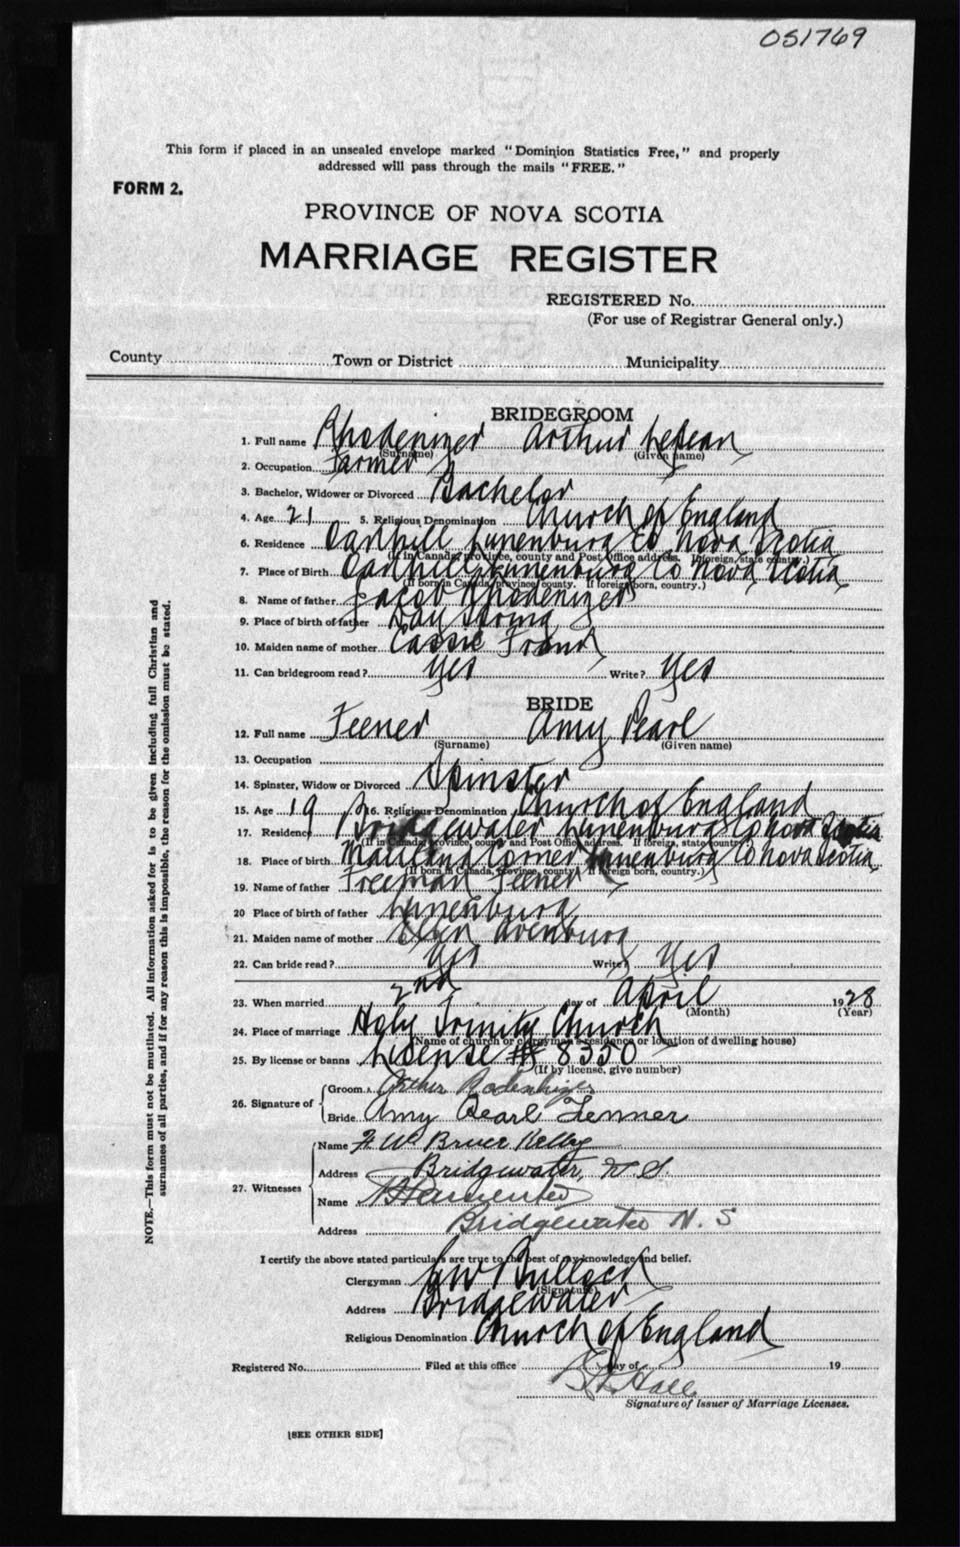 051769
This form if placed in an unsealed envelope marked "Dominion Statistics Free," and properly
addressed will pass through the mails "FREE."
FORM 2.
PROVINCE OF NOVA SCOTIA
MARRIAGE REGISTER
REGISTERED No.
(For use of Registrar General only.)
County Town or District Municipality
BRIDEGROOM
1. Full name Rhodenizer Arthur
(Surname) (Given name)
2. Occupation Farmer
3. Bachelor, Widower or Divorced Bachelor
4. Age 21 5. Religious Denomination Church of England
6. Residence Oakhill Lunenburg Co Nova Scotia
(If in Canada, province, county and Post Office address. If foreign, state country.)
7. Place of Birth Oakhill Lunenburg Co Nova Scotia
(If born in Canada, province, county. If foreign born, country.)
8. Name of father Jacob Rhodenizer
9. Place of birth of father
10. Maiden name of mother Cassie
11. Can bridegroom read? Yes Write? Yes
BRIDE
12. Full name Feener Amy Pearl
(Surname) (Given name)
13. Occupation
14. Spinster, Widow or Divorced Spinster
15. Age 19 16. Religious Denomination Church of England
17. Residence Bridgewater Lunenburg Co Nova Scotia
(If in Canada, province, county and Post Office address. If foreign, state country.)
18. Place of birth Maitland Corner Lunenburg Co Nova Scotia
(If born in Canada, province, county. If foreign born, country.)
19. Name of father Freeman Feener
20 Place of birth of father Lunenburg
21. Maiden name of mother
22. Can bride read? Yes Write? Yes
23. When married 2nd day of April 1928
(Month) (Year)
24. Place of marriage Holy Trinity Church
(Name of church or clergyman's residence or location of dwelling house)
25. By license or banns License # 8350
(If by license, give number)
26. Signature of Groom Arther Rodenhizer
Bride Amy Pearl Fenner
27. Witnesses
Name Bruce Kelley
Address Bridgewater, N. S.
Name
Address Bridgewater N. S
I certify the above stated particulars are true to the best of my knowledge and belief.
Clergyman Bullock
(Signature)
Address Bridgewater
Religious Denomination Church of England
Registered No. Filed at this office day of 19
Hall
Signature of Issuer of Marriage Licenses.
[SEE OTHER SIDE]
NOTE.—This form must not be mutilated. All information asked for is to be given including full Christian and
surnames of all parties, and if for any reason this is impossible, the reason for the omission must be stated.